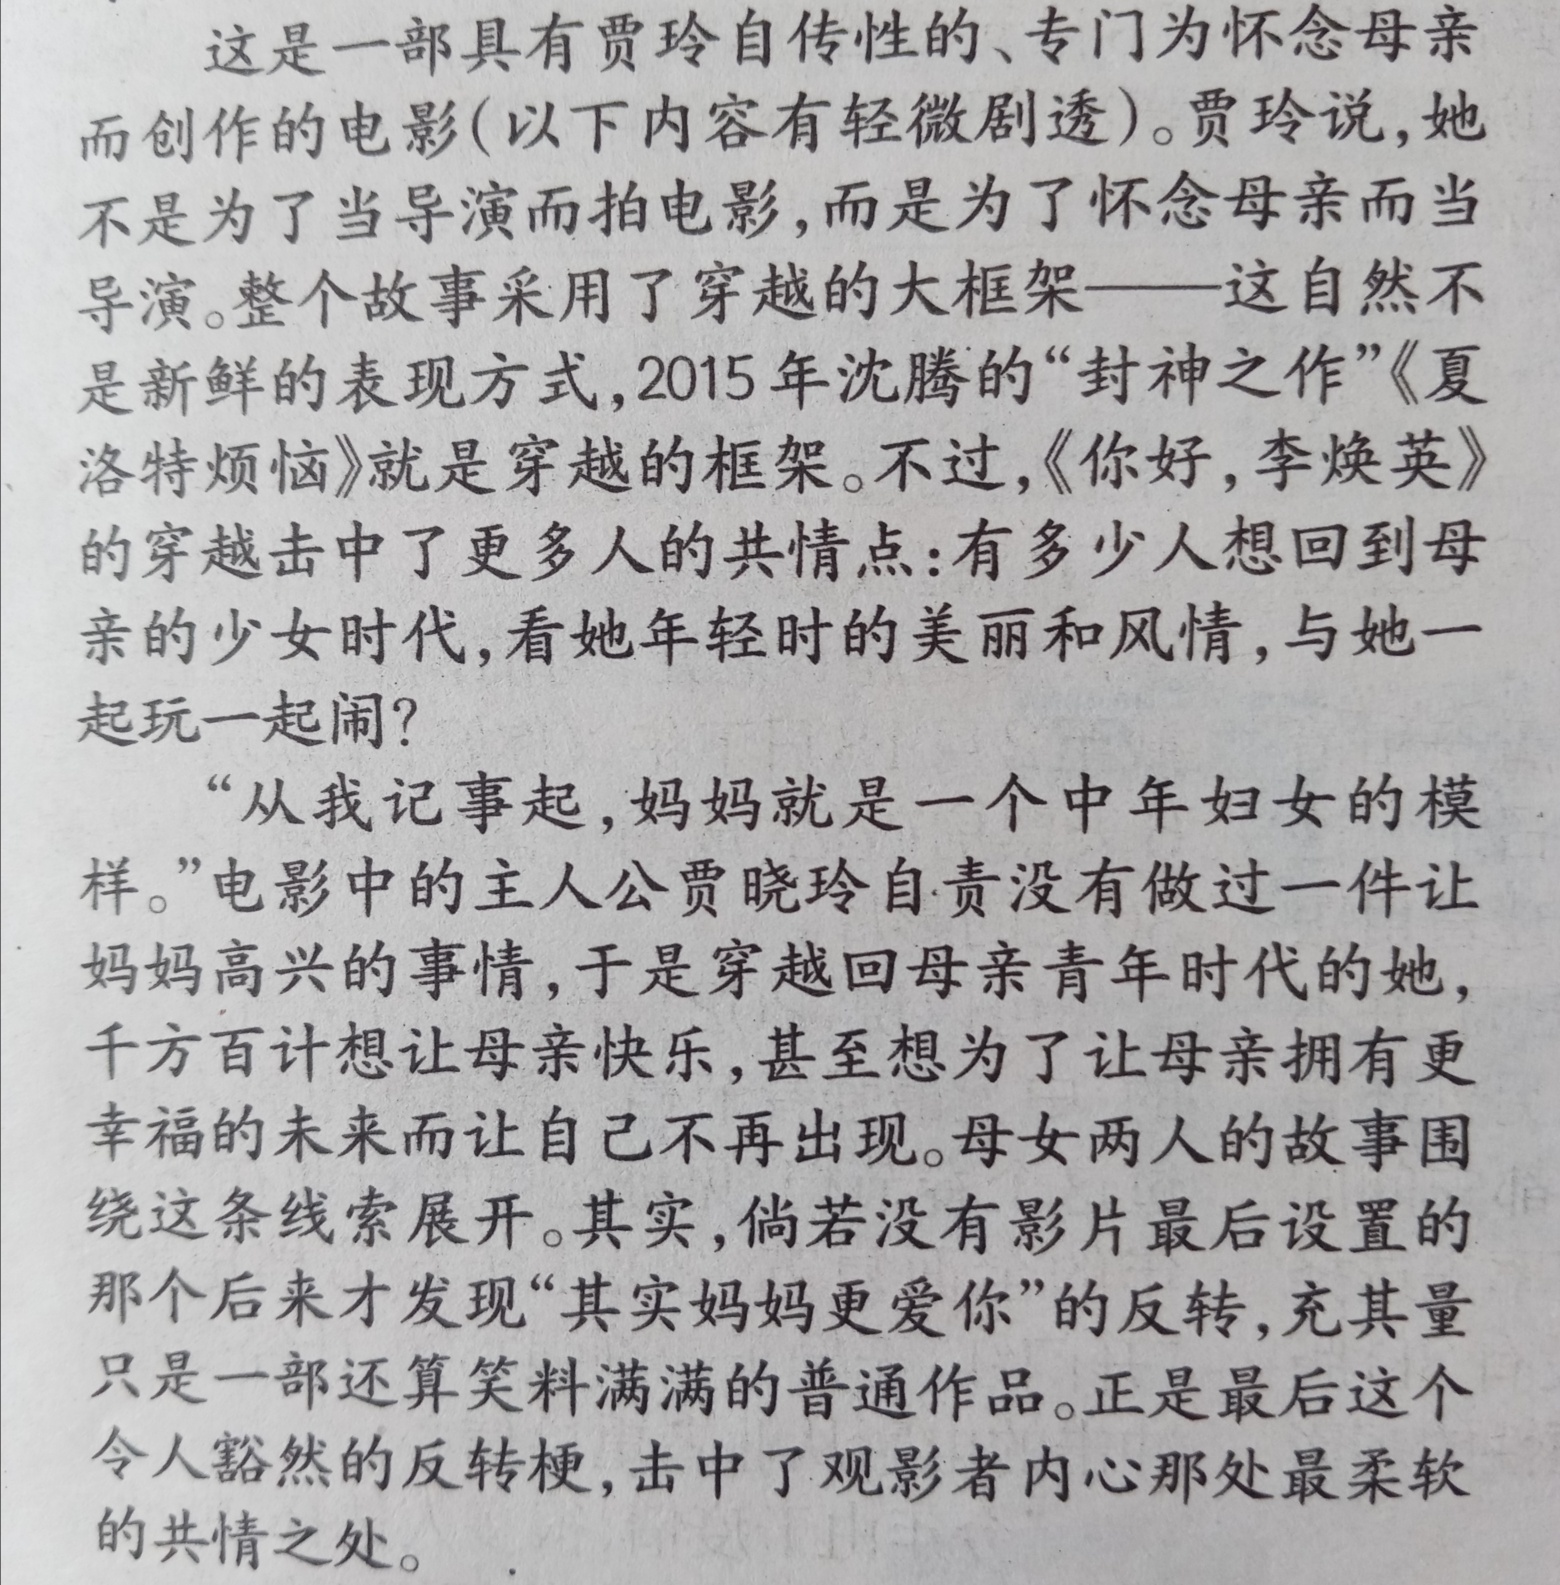 这是一部具有贾玲自传性的、专门为怀念母亲
而创作的电影(以下内容有轻微剧透)。贾玲说,她
不是为了当导演而拍电影,而是为了怀念母亲而当
导演。整个故事采用了穿越的大框架——这自然不
是新鲜的表现方式,2015年沈腾的“封神之作”《夏
洛特烦恼》就是穿越的框架。不过,《你好,李焕英》
的穿越击中了更多人的共情点:有多少人想回到母
亲的少女时代,看她年轻时的美丽和风情,与她一
起玩一起闹?
“从我记事起,妈妈就是一个中年妇女的模
样。”电影中的主人公贾晓玲自责没有做过一件让
妈妈高兴的事情,于是穿越回母亲青年时代的她,
千方百计想让母亲快乐,甚至想为了让母亲拥有更
幸福的未来而让自己不再出现。母女两人的故事围
绕这条线索展开。其实,倘若没有影片最后设置的
那个后来才发现“其实妈妈更爱你”的反转,充其量
只是一部还算笑料满满的普通作品。正是最后这个
令人豁然的反转梗,击中了观影者内心那处最柔软
的共情之处。